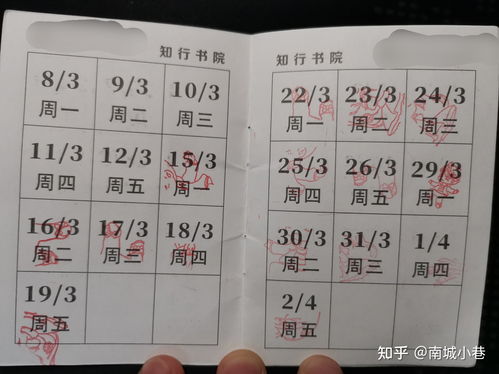 知行书院
8/3 9/3 10/3
周一 周二 周三
11/3 12/3 15/3
周四 周五 周一
16/3 17/3 18/3
周二 周三 周四
19/3
周五
知行书院
22/3 23/3 24/3
周一 周二 周三
25/3 26/3 29/3
周四 周五 周一
30/3 31/3 1/4
周二 周三 周四
2/4
周五
知乎 @南城小巷